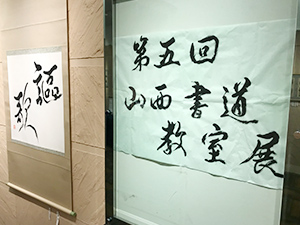 第五回
山西書道
教室展
謳歌